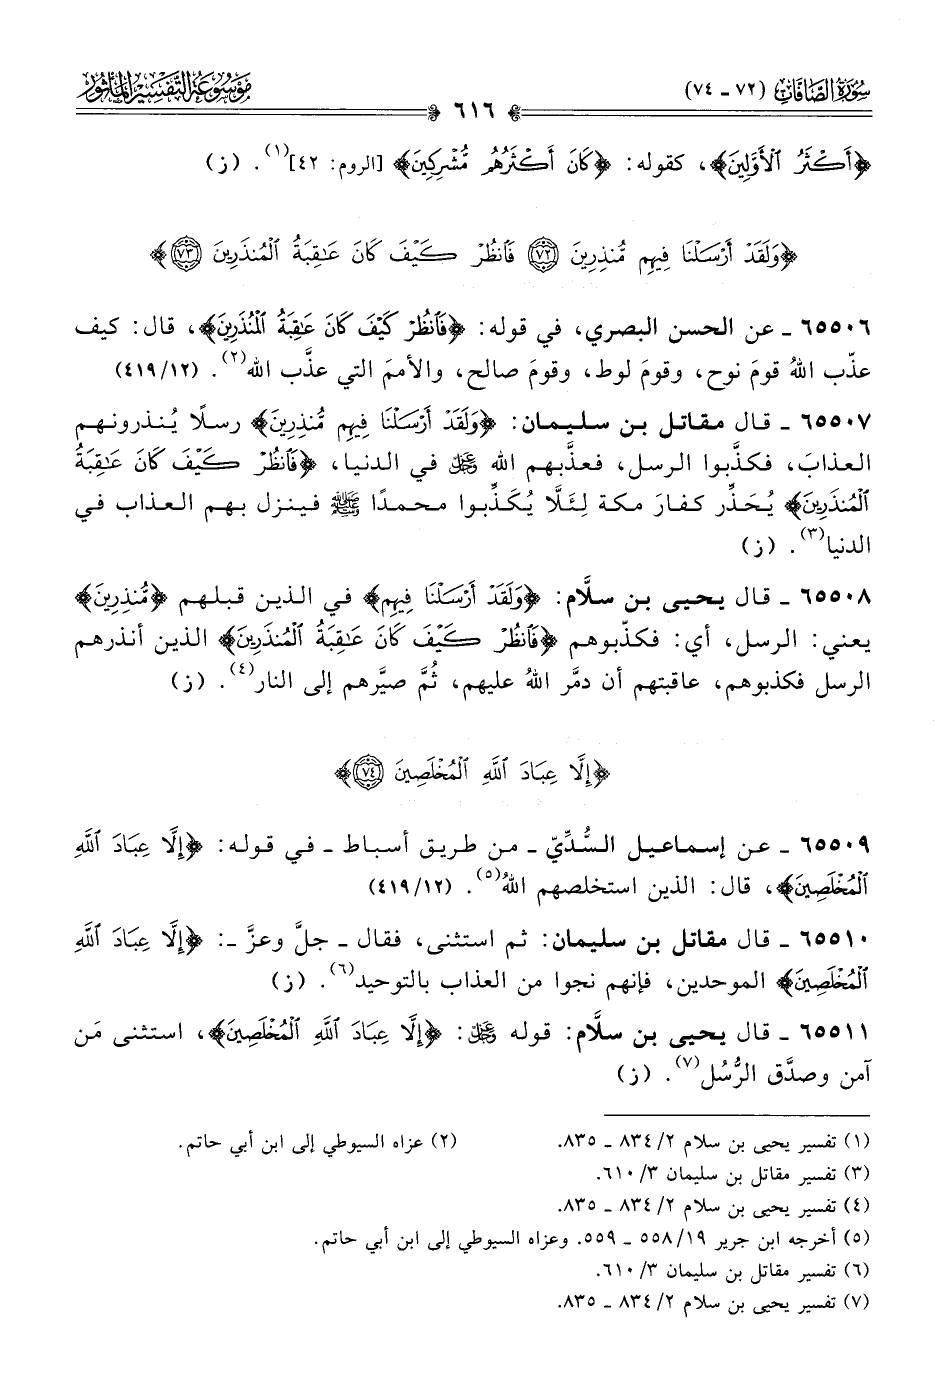 سُورَةُ الصَّافَّاتِ (٧٢ - ٧٤)
٦١٦
مَوْسُوعَةُ التَّفْسِيرِ المَأْثُورِ
﴿أَكْثَرُ ٱلْأَوَّلِينَ﴾، كقوله: ﴿كَانَ أَكْثَرُهُم مُّشْرِكِينَ﴾ [الروم: ٤٢]⁽¹⁾. (ز)
﴿وَلَقَدْ أَرْسَلْنَا فِيهِم مُّنذِرِينَ ٧٢ فَٱنظُرْ كَيْفَ كَانَ عَـٰقِبَةُ ٱلْمُنذَرِينَ ٧٣﴾
٦٥٥٠٦ ـ عن الحسن البصري، في قوله: ﴿فَٱنظُرْ كَيْفَ كَانَ عَـٰقِبَةُ ٱلْمُنذَرِينَ﴾، قال: كيف
عذّب اللهُ قومَ نوح، وقومَ لوط، وقومَ صالح، والأممَ التي عذَّب الله(٢). (٤١٩/١٢)
٦٥٥٠٧ ـ قال مقاتل بن سليمان: ﴿وَلَقَدْ أَرْسَلْنَا فِيهِم مُّنذِرِينَ﴾ رسلًا يُنذرونهم
العذابَ، فكذَّبوا الرسل، فعذَّبهم الله ﷿ في الدنيا، ﴿فَٱنظُرْ كَيْفَ كَانَ عَـٰقِبَةُ
ٱلْمُنذَرِينَ﴾ يُحَذِّر كفارَ مكة لِئَلَّا يُكَذِّبوا محمدًا ﷺ فينزل بهم العذاب في
الدنيا(٣). (ز)
٦٥٥٠٨ ـ قال يحيى بن سلَّام: ﴿وَلَقَدْ أَرْسَلْنَا فِيهِم﴾ في الذين قبلهم ﴿مُّنذِرِينَ﴾
يعني: الرسل، أي: فكذّبوهم ﴿فَٱنظُرْ كَيْفَ كَانَ عَـٰقِبَةُ ٱلْمُنذَرِينَ﴾ الذين أنذرهم
الرسل فكذبوهم، عاقبتهم أن دمَّر اللهُ عليهم، ثُمَّ صيَّرهم إلى النار(٤). (ز)
﴿إِلَّا عِبَادَ ٱللَّهِ ٱلْمُخْلَصِينَ ٧٤﴾
٦٥٥٠٩ ـ عن إسماعيل السُّدِّيّ ـ من طريق أسباط ـ في قوله: ﴿إِلَّا عِبَادَ ٱللَّهِ
ٱلْمُخْلَصِينَ﴾، قال: الذين استخلصهم اللهُ(٥). (٤١٩/١٢)
٦٥٥١٠ ـ قال مقاتل بن سليمان: ثم استثنى، فقال ـ جلَّ وعزَّ ـ: ﴿إِلَّا عِبَادَ ٱللَّهِ
ٱلْمُخْلَصِينَ﴾ الموحدين، فإنهم نجوا من العذاب بالتوحيد(٦). (ز)
٦٥٥١١ ـ قال يحيى بن سلَّام: قوله ﷿: ﴿إِلَّا عِبَادَ ٱللَّهِ ٱلْمُخْلَصِينَ﴾، استثنى مَن
آمن وصدَّق الرُّسُل(٧). (ز)
(١) تفسير يحيى بن سلام ٨٣٤/٢ ـ ٨٣٥. (٢) عزاه السيوطي إلى ابن أبي حاتم.
(٣) تفسير مقاتل بن سليمان ٦١٠/٣.
(٤) تفسير يحيى بن سلام ٨٣٤/٢ ـ ٨٣٥.
(٥) أخرجه ابن جرير ٥٥٨/١٩ ـ ٥٥٩. وعزاه السيوطي إلى ابن أبي حاتم.
(٦) تفسير مقاتل بن سليمان ٦١٠/٣.
(٧) تفسير يحيى بن سلام ٨٣٤/٢ ـ ٨٣٥.